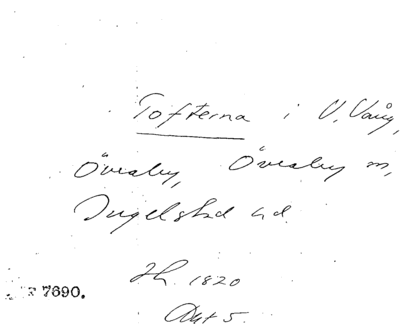 Tofterna i V. Vång,
Överaby, Överaby sn,
Ingelstad hd.
Hl. 1820
Akt 5.
7690.